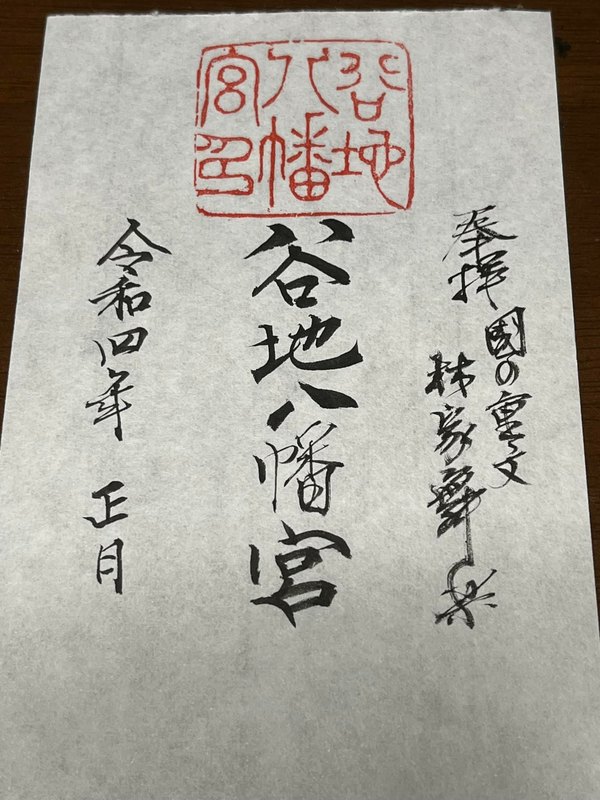 奉拝
國の重文
林家舞楽
谷地
八幡
宮印
谷地八幡宮
令和四年 正月